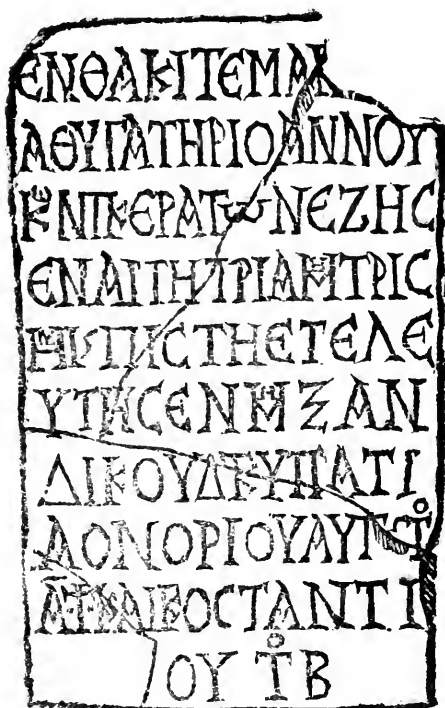 ΕΝΘΑΚΙΤΕΜΑΚ
ΑΘΥΓΑΤΗΡΙΟΑΝΝΟΥ
ΚΕΝΠΚΕΡΑΤωΝΕΖΗC
ΕΝΑΙΤΗΤΡΙΑΜΗΤΡΙC
ΗΜΙϚΠΙCΤΗΕΤΕΛΕ
ΥΤΗCΕΝΜΗΞΑΝ
ΔΙΚΟΥΔΚΥΠΑΤΙ
ΑΟΝΟΡΙΟΥΑΥΓCΤΟ
ΚΑΙΚΟCΤΑΝΤΙ
ΟΥ ΤΟ Β